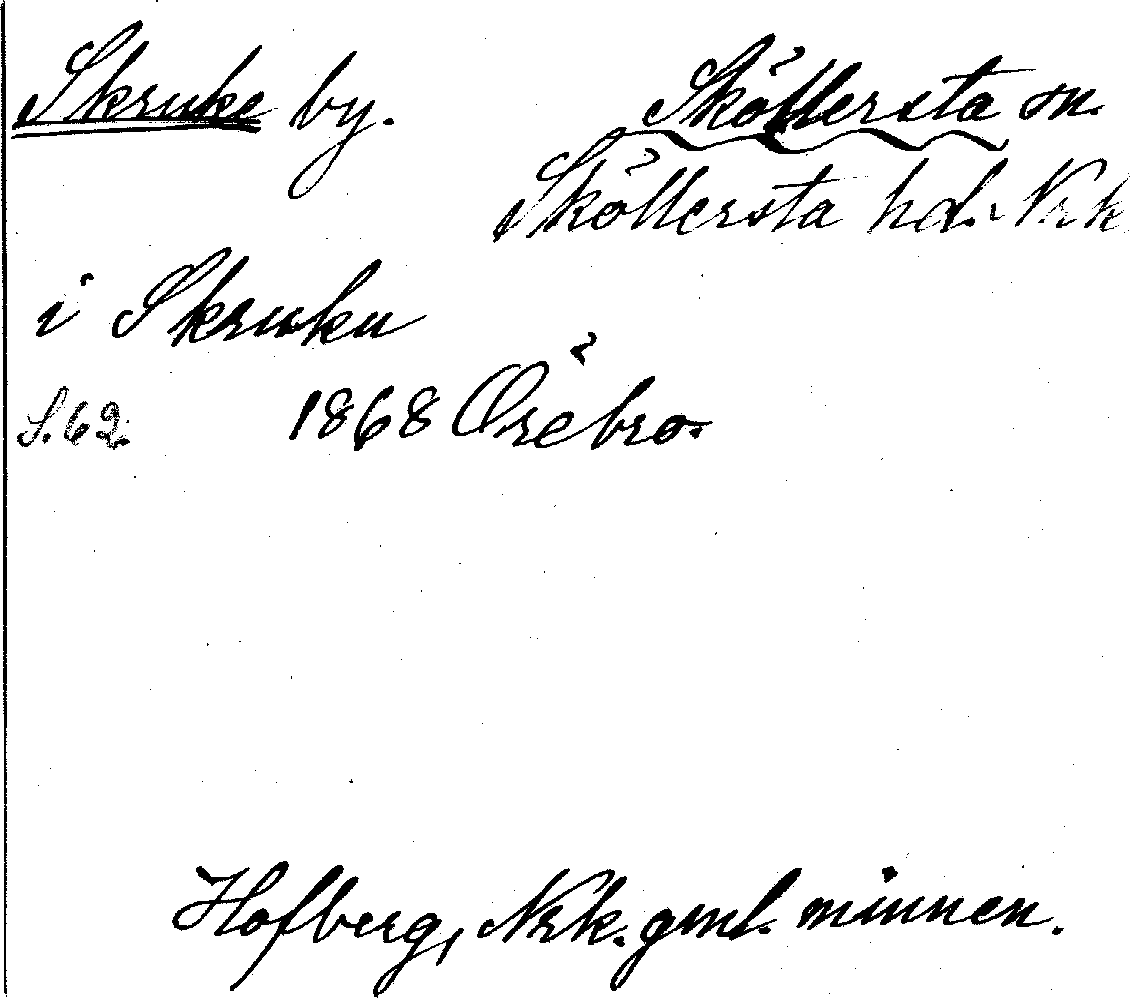 Skruke by. Sköllersta sn.
Sköllersta hd. Nrk
i Skruku
S. 62. 1868 Örebro.
Hofberg, Nrk. gml. minnen.